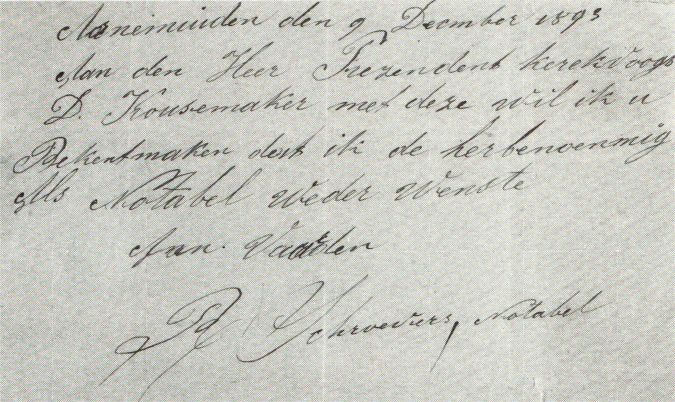 Arnemuiden den 9 December 1893
Aan den Heer Prezendent kerekvoogd
D. Kousemaker met deze wil ik u
Bekentmaken dat ik de herbenoenmig
Als Notabel weder wenste
Aan. Vaarden
Schroevers, Notabel